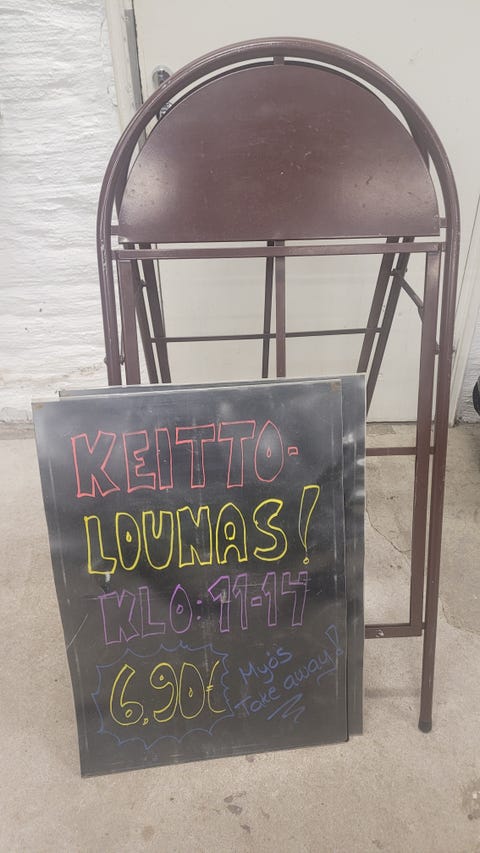 KEITTO-
LOUNAS!
KLO: 11-14
6.90€
Myös
Take away!